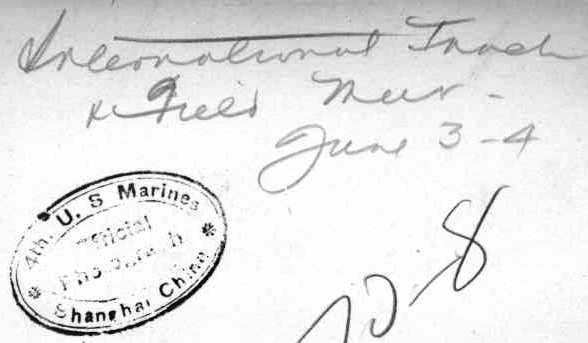 International Track
& Field Meet -
June 3-4
4th. U. S Marines
Official
Photograph
Shanghai China
10-8